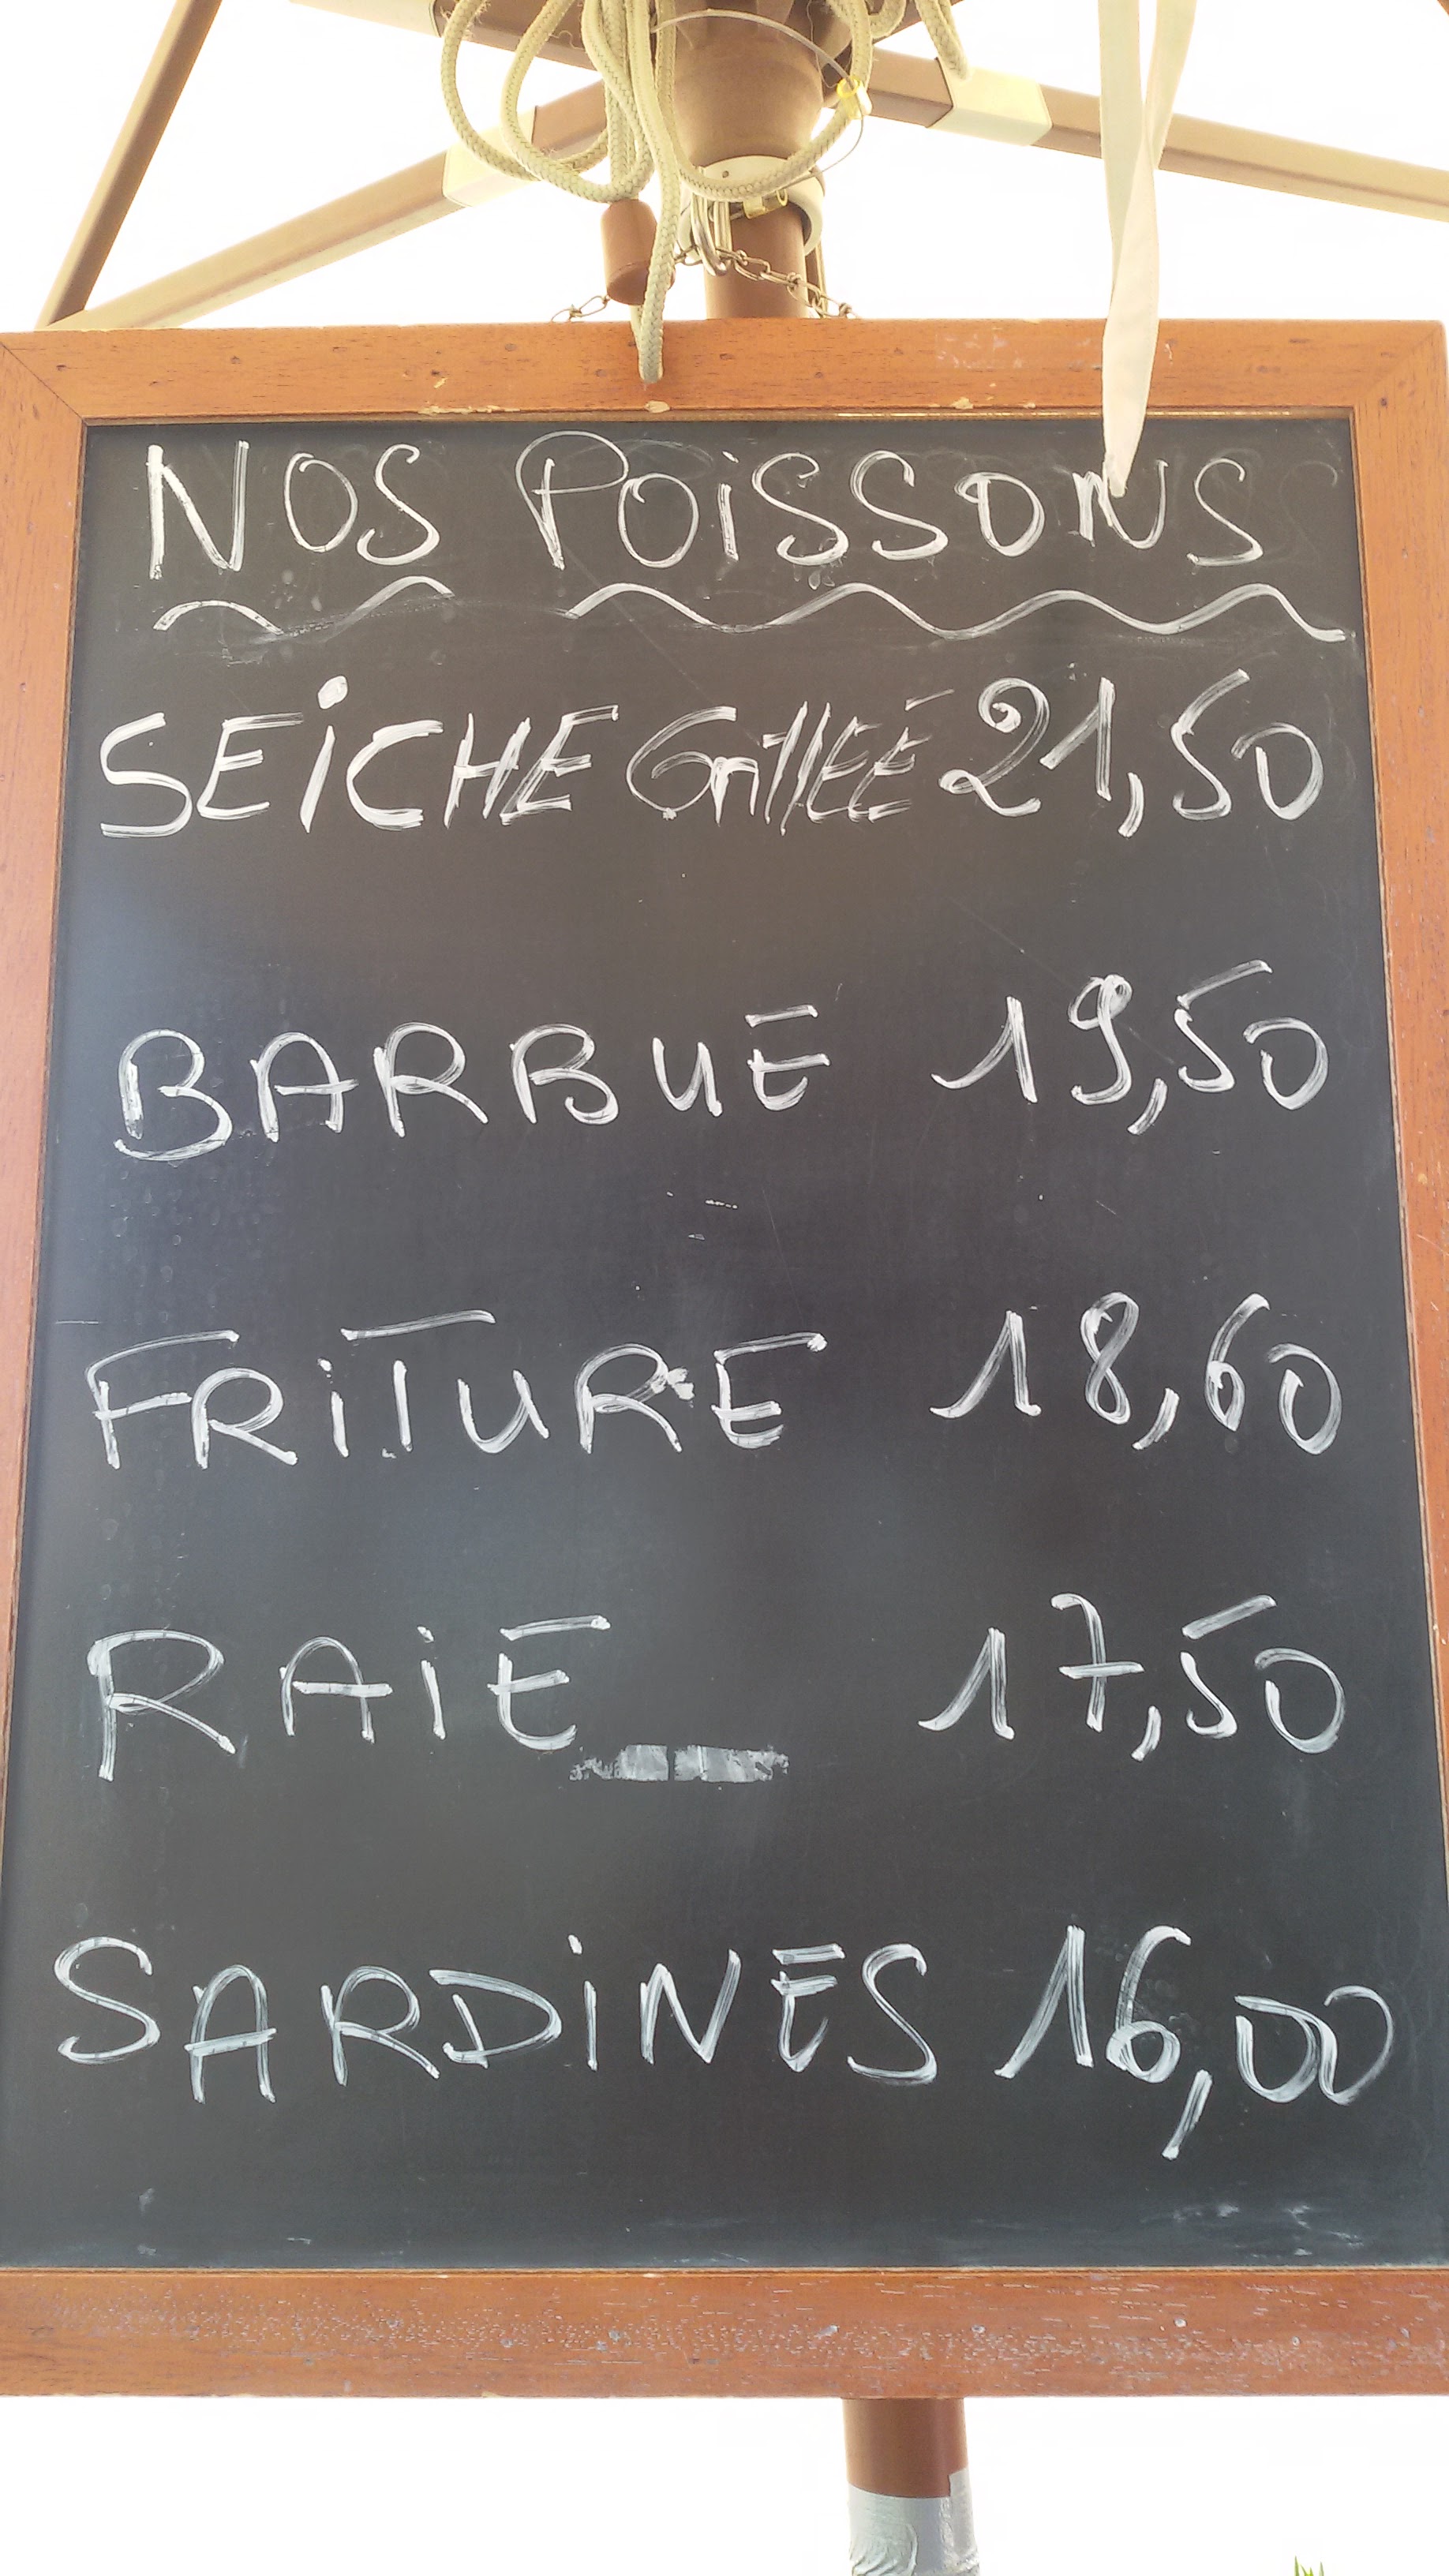 NOS POiSSONS
SEiCHE GrillEÉ 21,50
BARBUE 19,50
FRiTURE 18,60
RAiE 17,50
SARDiNES 16,00